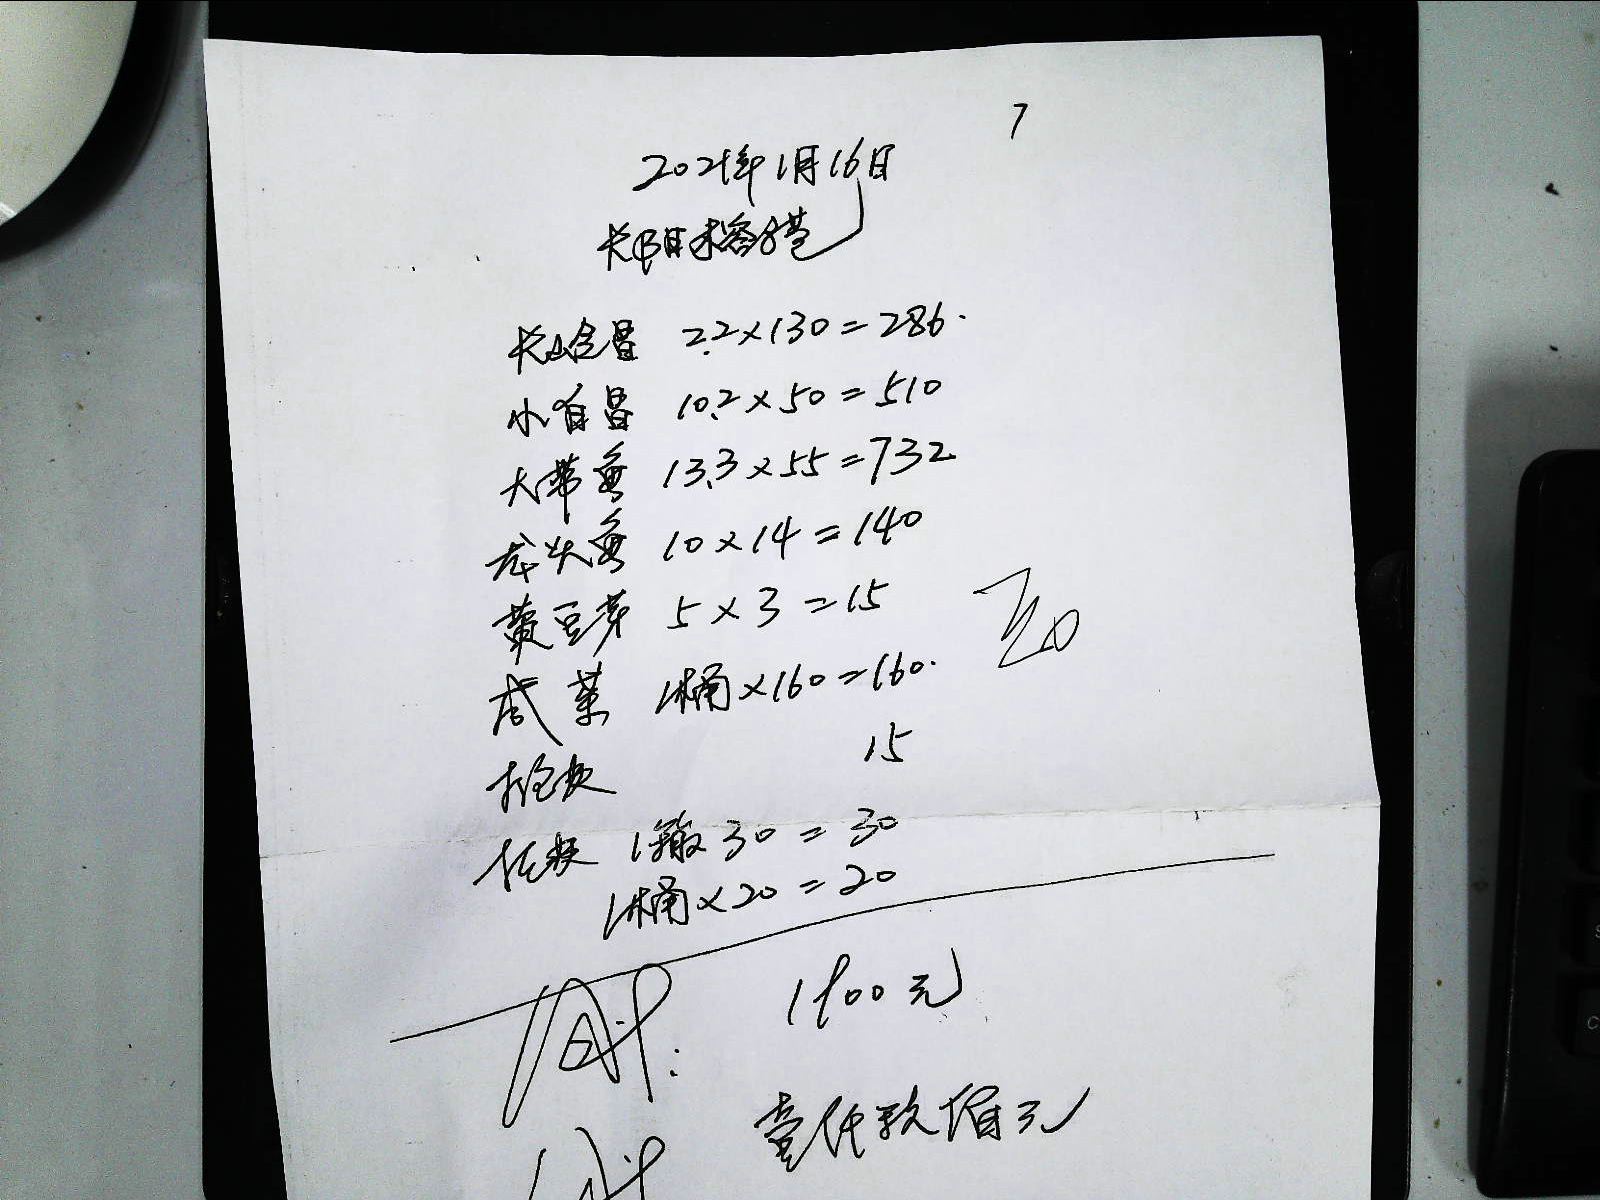 7
2021年1月16日
2.2×130=286.
小白昌 10.2×50=510
大带鱼 13.3×55=732
龙头鱼 10×14=140
黄豆芽 5×3=15
咸菜 1桶×160=160.
15
1箱30=30
1桶×20=20
1900元
壹仟玖佰元